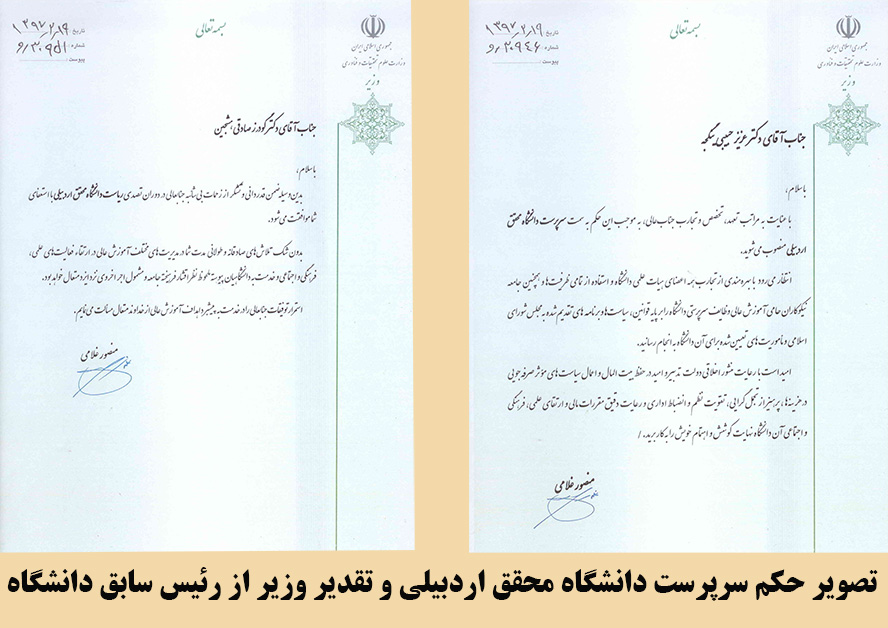 جمهوری اسلامی ایران
وزارت علوم تحقیقات و فناوری
وزیر
بسمه تعالی
تاریخ ۱۳۹۷/۲/۱۹
شماره ۳۰۹۴۶/و
پیوست
جناب آقای دکتر عزیز حبیبی ینگجه
با سلام،
با عنایت به مراتب تعهد، تخصص و تجارب جناب عالی، به موجب این حکم به سمت سرپرست دانشگاه محقق
اردبیلی منصوب می شوید.
انتظار می رود با بهره مندی از تجارب همه اعضای هیات علمی دانشگاه و استفاده از تمامی ظرفیت ها و همچنین جامعه
نیکوکاران حامی آموزش عالی وظایف سرپرستی دانشگاه را بر پایه قوانین، سیاست ها و برنامه های تقدیم شده به مجلس شورای
اسلامی و مأموریت های تعیین شده برای آن دانشگاه به انجام رسانید.
امید است با رعایت منشور اخلاقی دولت تدبیر و امید در حفظ بیت المال و اعمال سیاست های مؤثر صرفه جویی
در هزینه ها، پرهیز از تجمل گرایی، تقویت نظم و انضباط اداری و رعایت دقیق مقررات مالی و ارتقای علمی، فرهنگی
و اجتماعی آن دانشگاه نهایت کوشش و اهتمام خویش را به کار برید. /
منصور غلامی
جمهوری اسلامی ایران
وزارت علوم تحقیقات و فناوری
وزیر
بسمه تعالی
تاریخ ۱۳۹۷/۲/۱۹
شماره ۳۰۹۵۱/و
پیوست
جناب آقای دکتر گودرز صادقی هشجین
با سلام،
بدین وسیله ضمن قدردانی و تشکر از زحمات بی شائبه جنابعالی در دوران تصدی ریاست دانشگاه محقق اردبیلی با استعفای
شما موافقت می شود.
بدون شک تلاش های صادقانه و طولانی مدت شما در مدیریت های مختلف آموزش عالی در ارتقاء فعالیت های علمی،
فرهنگی و اجتماعی و خدمت به دانشگاهیان پیوسته ملحوظ نظر اقشار فرهیخته جامعه و مشمول اجر اخروی نزد ایزد متعال خواهد بود.
استمرار توفیقات جنابعالی را در خدمت به پیشبرد اهداف آموزش عالی از خداوند متعال مسألت می نمایم.
منصور غلامی
تصویر حکم سرپرست دانشگاه محقق اردبیلی و تقدیر وزیر از رئیس سابق دانشگاه